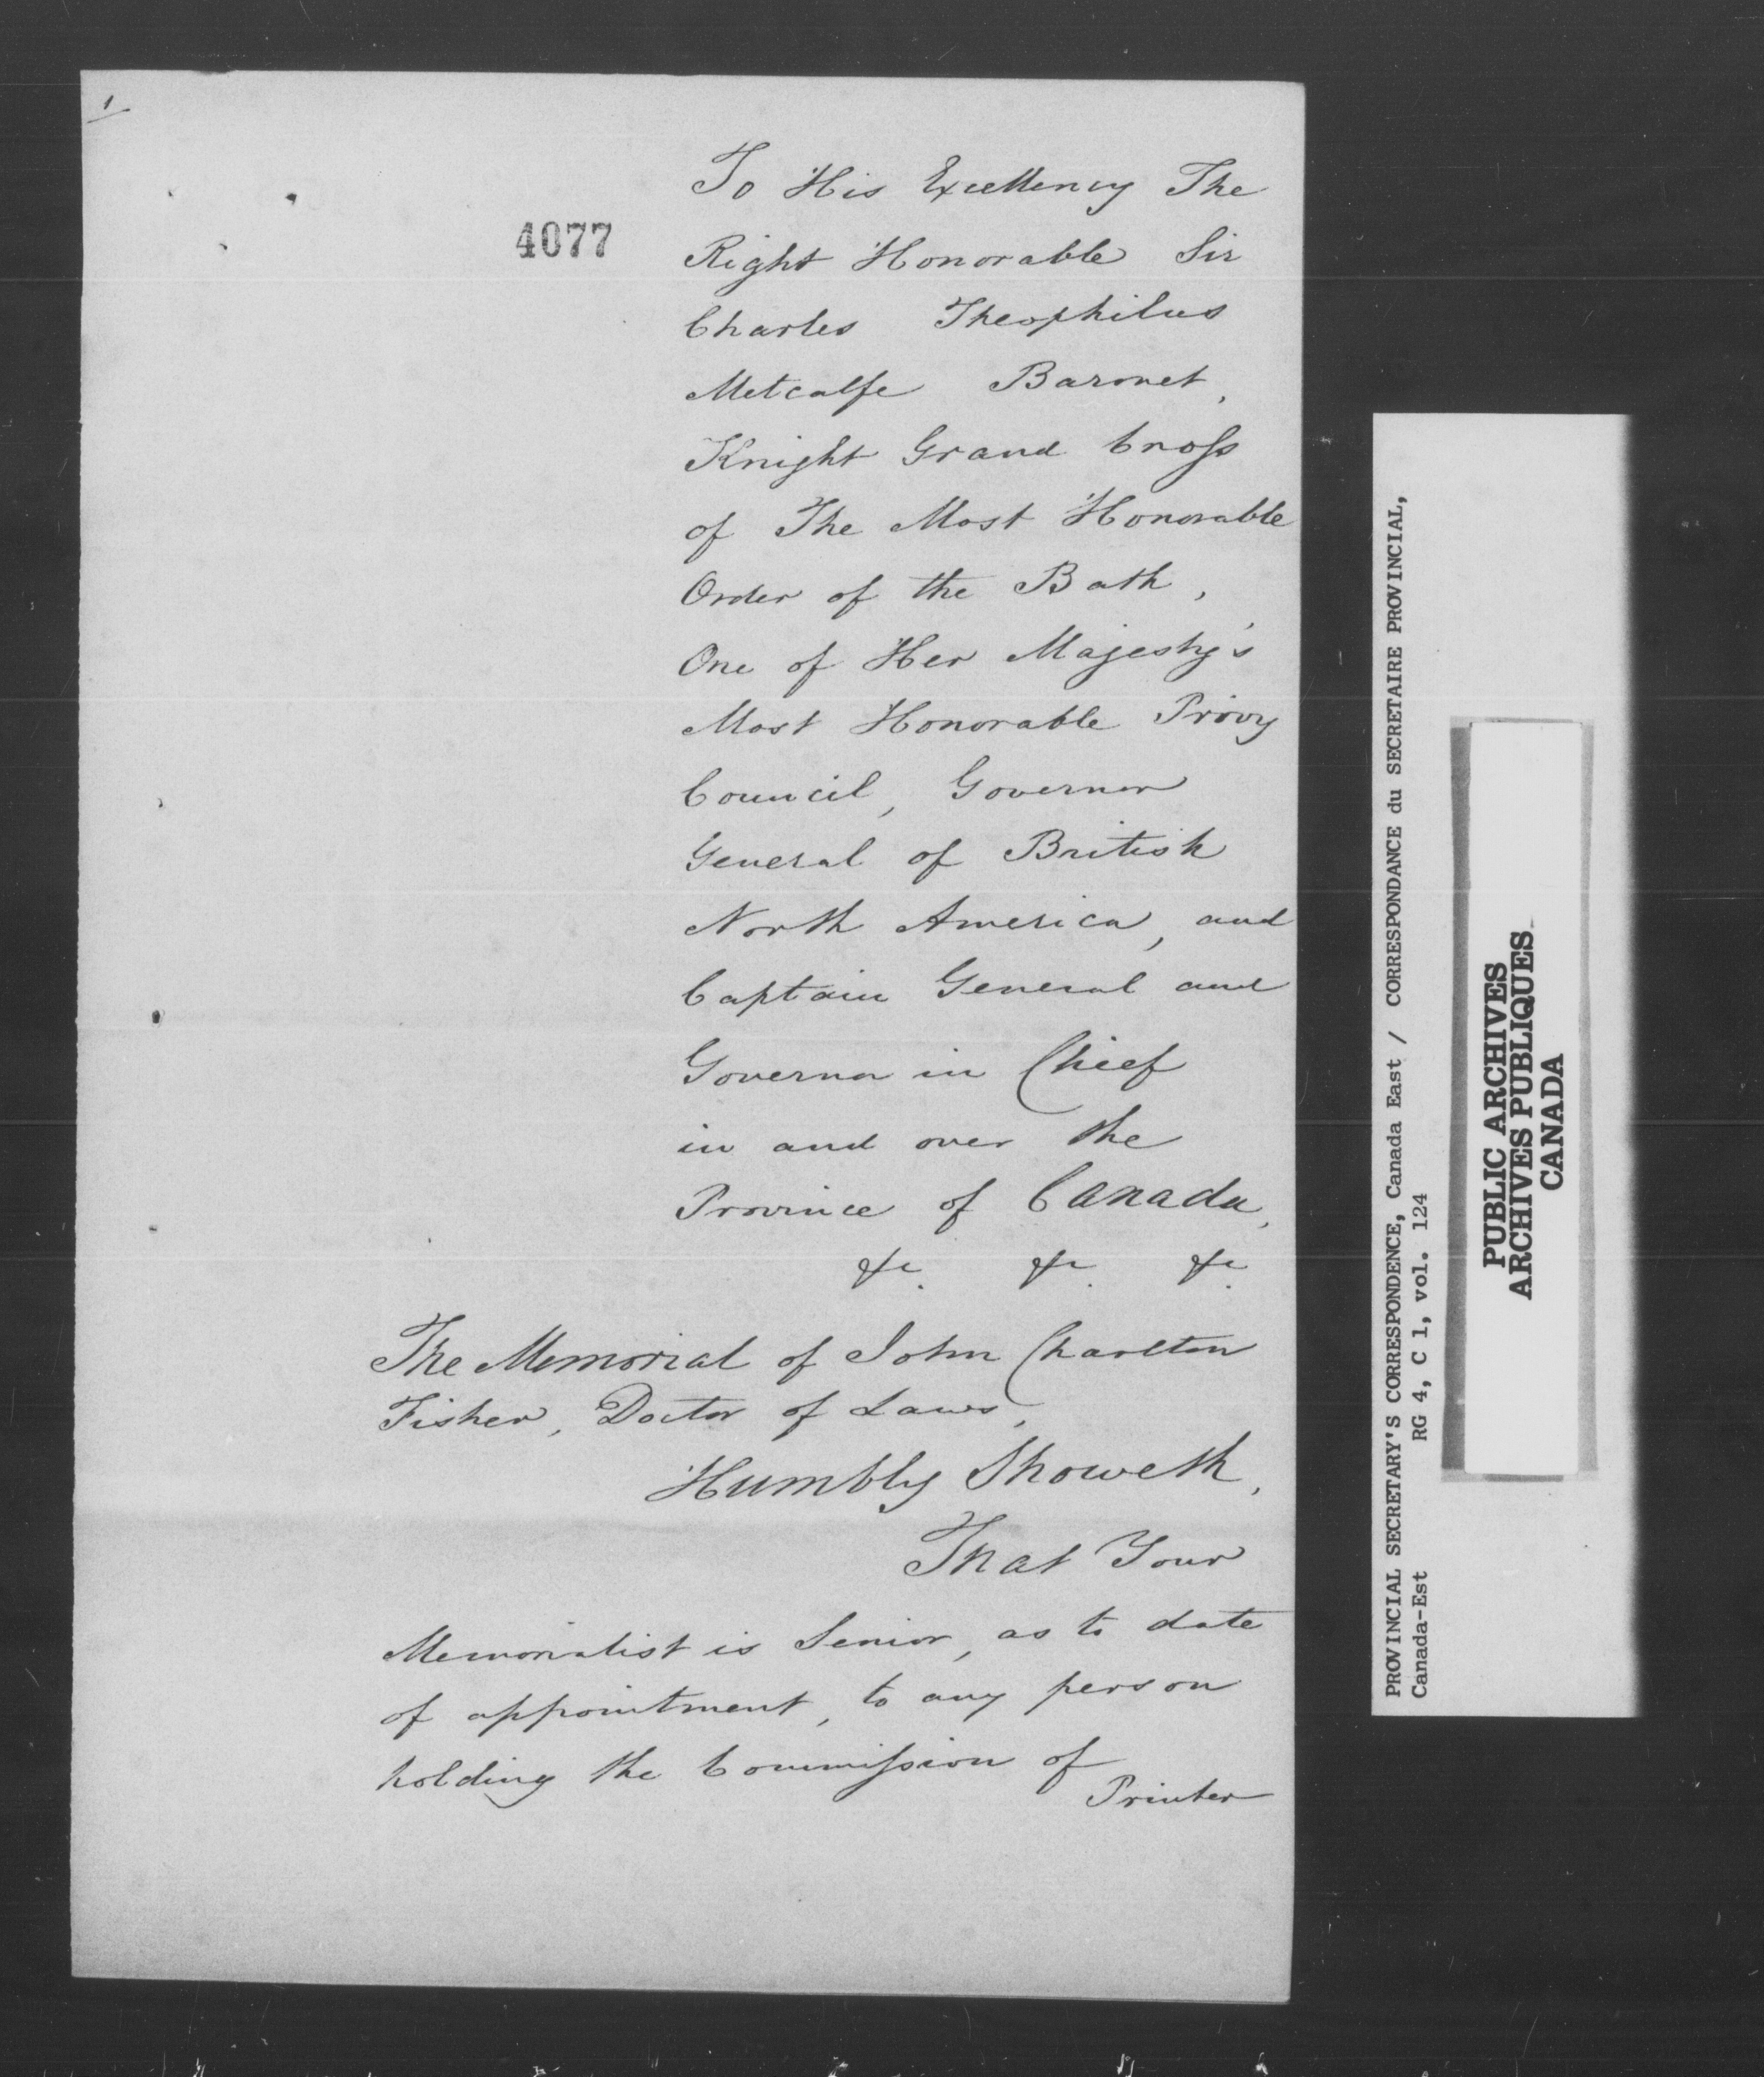 1
4077
To His Excellency The
Right Honorable Sir
Charles Theophilus
Metcalfe Baronet,
Knight Grand Cross
of The Most Honorable
Order of the Bath,
One of Her Majesty's
Most Honorable Privy
Council, Governor
General of British
North America, and
Captain General and
Governor in Chief
in and over the
Province of Canada,
&c. &c. &c.
The Memorial of John Charlton
Fisher, Doctor of Laws,
Humbly Showeth,
That Your
Memorialist is Senior, as to date
of appointment, to any person
holding the Commission of
Printer
PROVINCIAL SECRETARY'S CORRESPONDENCE, Canada East / CORRESPONDANCE du SECRETAIRE PROVINCIAL,
Canada-Est RG 4, C 1, vol. 124
PUBLIC ARCHIVES
ARCHIVES PUBLIQUES
CANADA